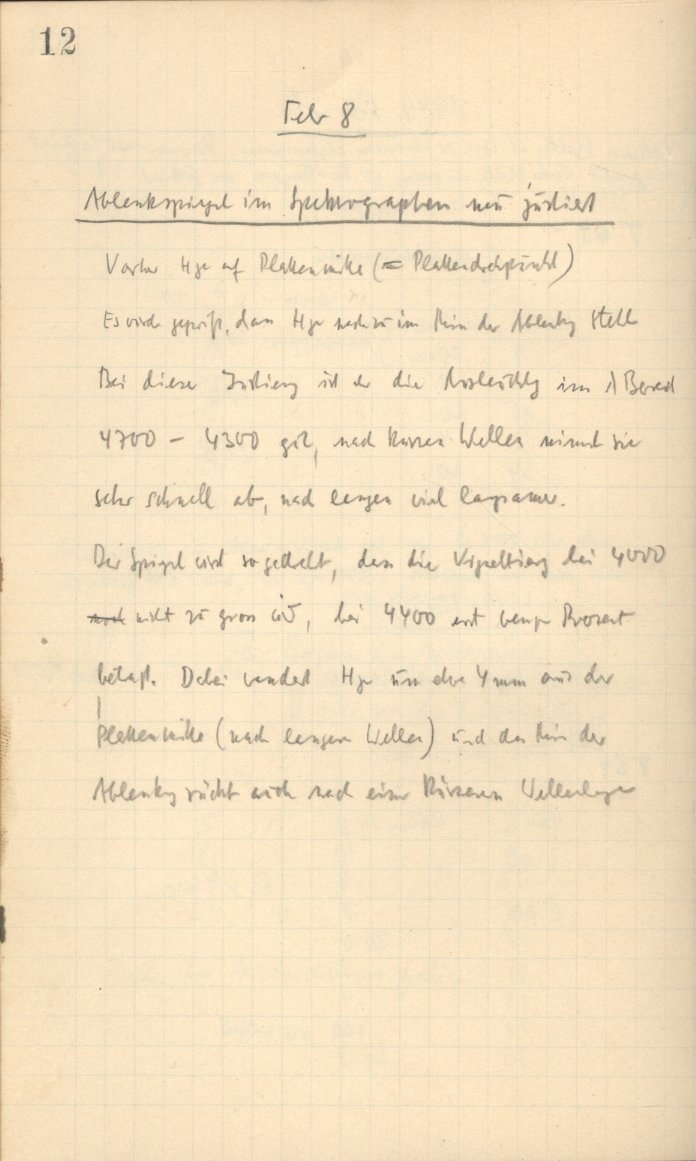 12
Febr 8
Ablenkspiegel im Spektrographen neu justiert
Vorher Hγ auf Plattenmitte (= Plattendrehpunkt)
Es wurde geprüft, dass Hγ nahezu im Min der Ablenkg steht
Bei dieser Justierg ist der die Ausleuchtg im λ Bereich
4700 - 4300 gut, nach kurzen Wellen nimmt sie
sehr schnell ab, nach langen viel langsamer.
Der Spiegel wird so gedreht, dass die Vignettierg bei 4000
nicht zu gross wird, bei 4400 erst wenige Prozent
beträgt. Dabei wandert Hγ um etwa 4 mm aus der
Plattenmitte (nach langen Wellen) und das Min der
Ablenkg rückt auch nach einer kürzeren Wellenlänge